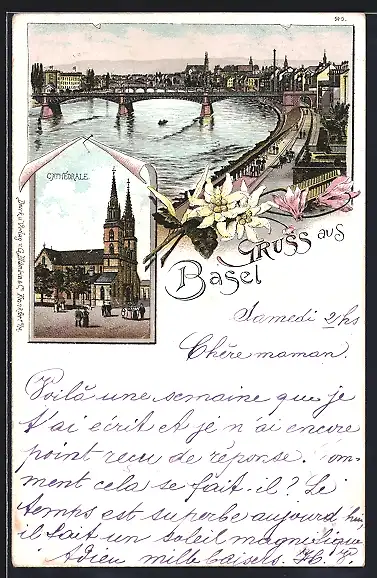 CATHÉDRALE.
GRUSS aus
Basel
Samedi 2 hs
Chère maman.
Voilà une semaine que je
t'ai écrit et je n'ai encore
point recu de réponse. Com-
ment cela se fait-il? Le
temps est superbe aujourd'hui
il fait un soleil magnifique
Adieu mille baisers.